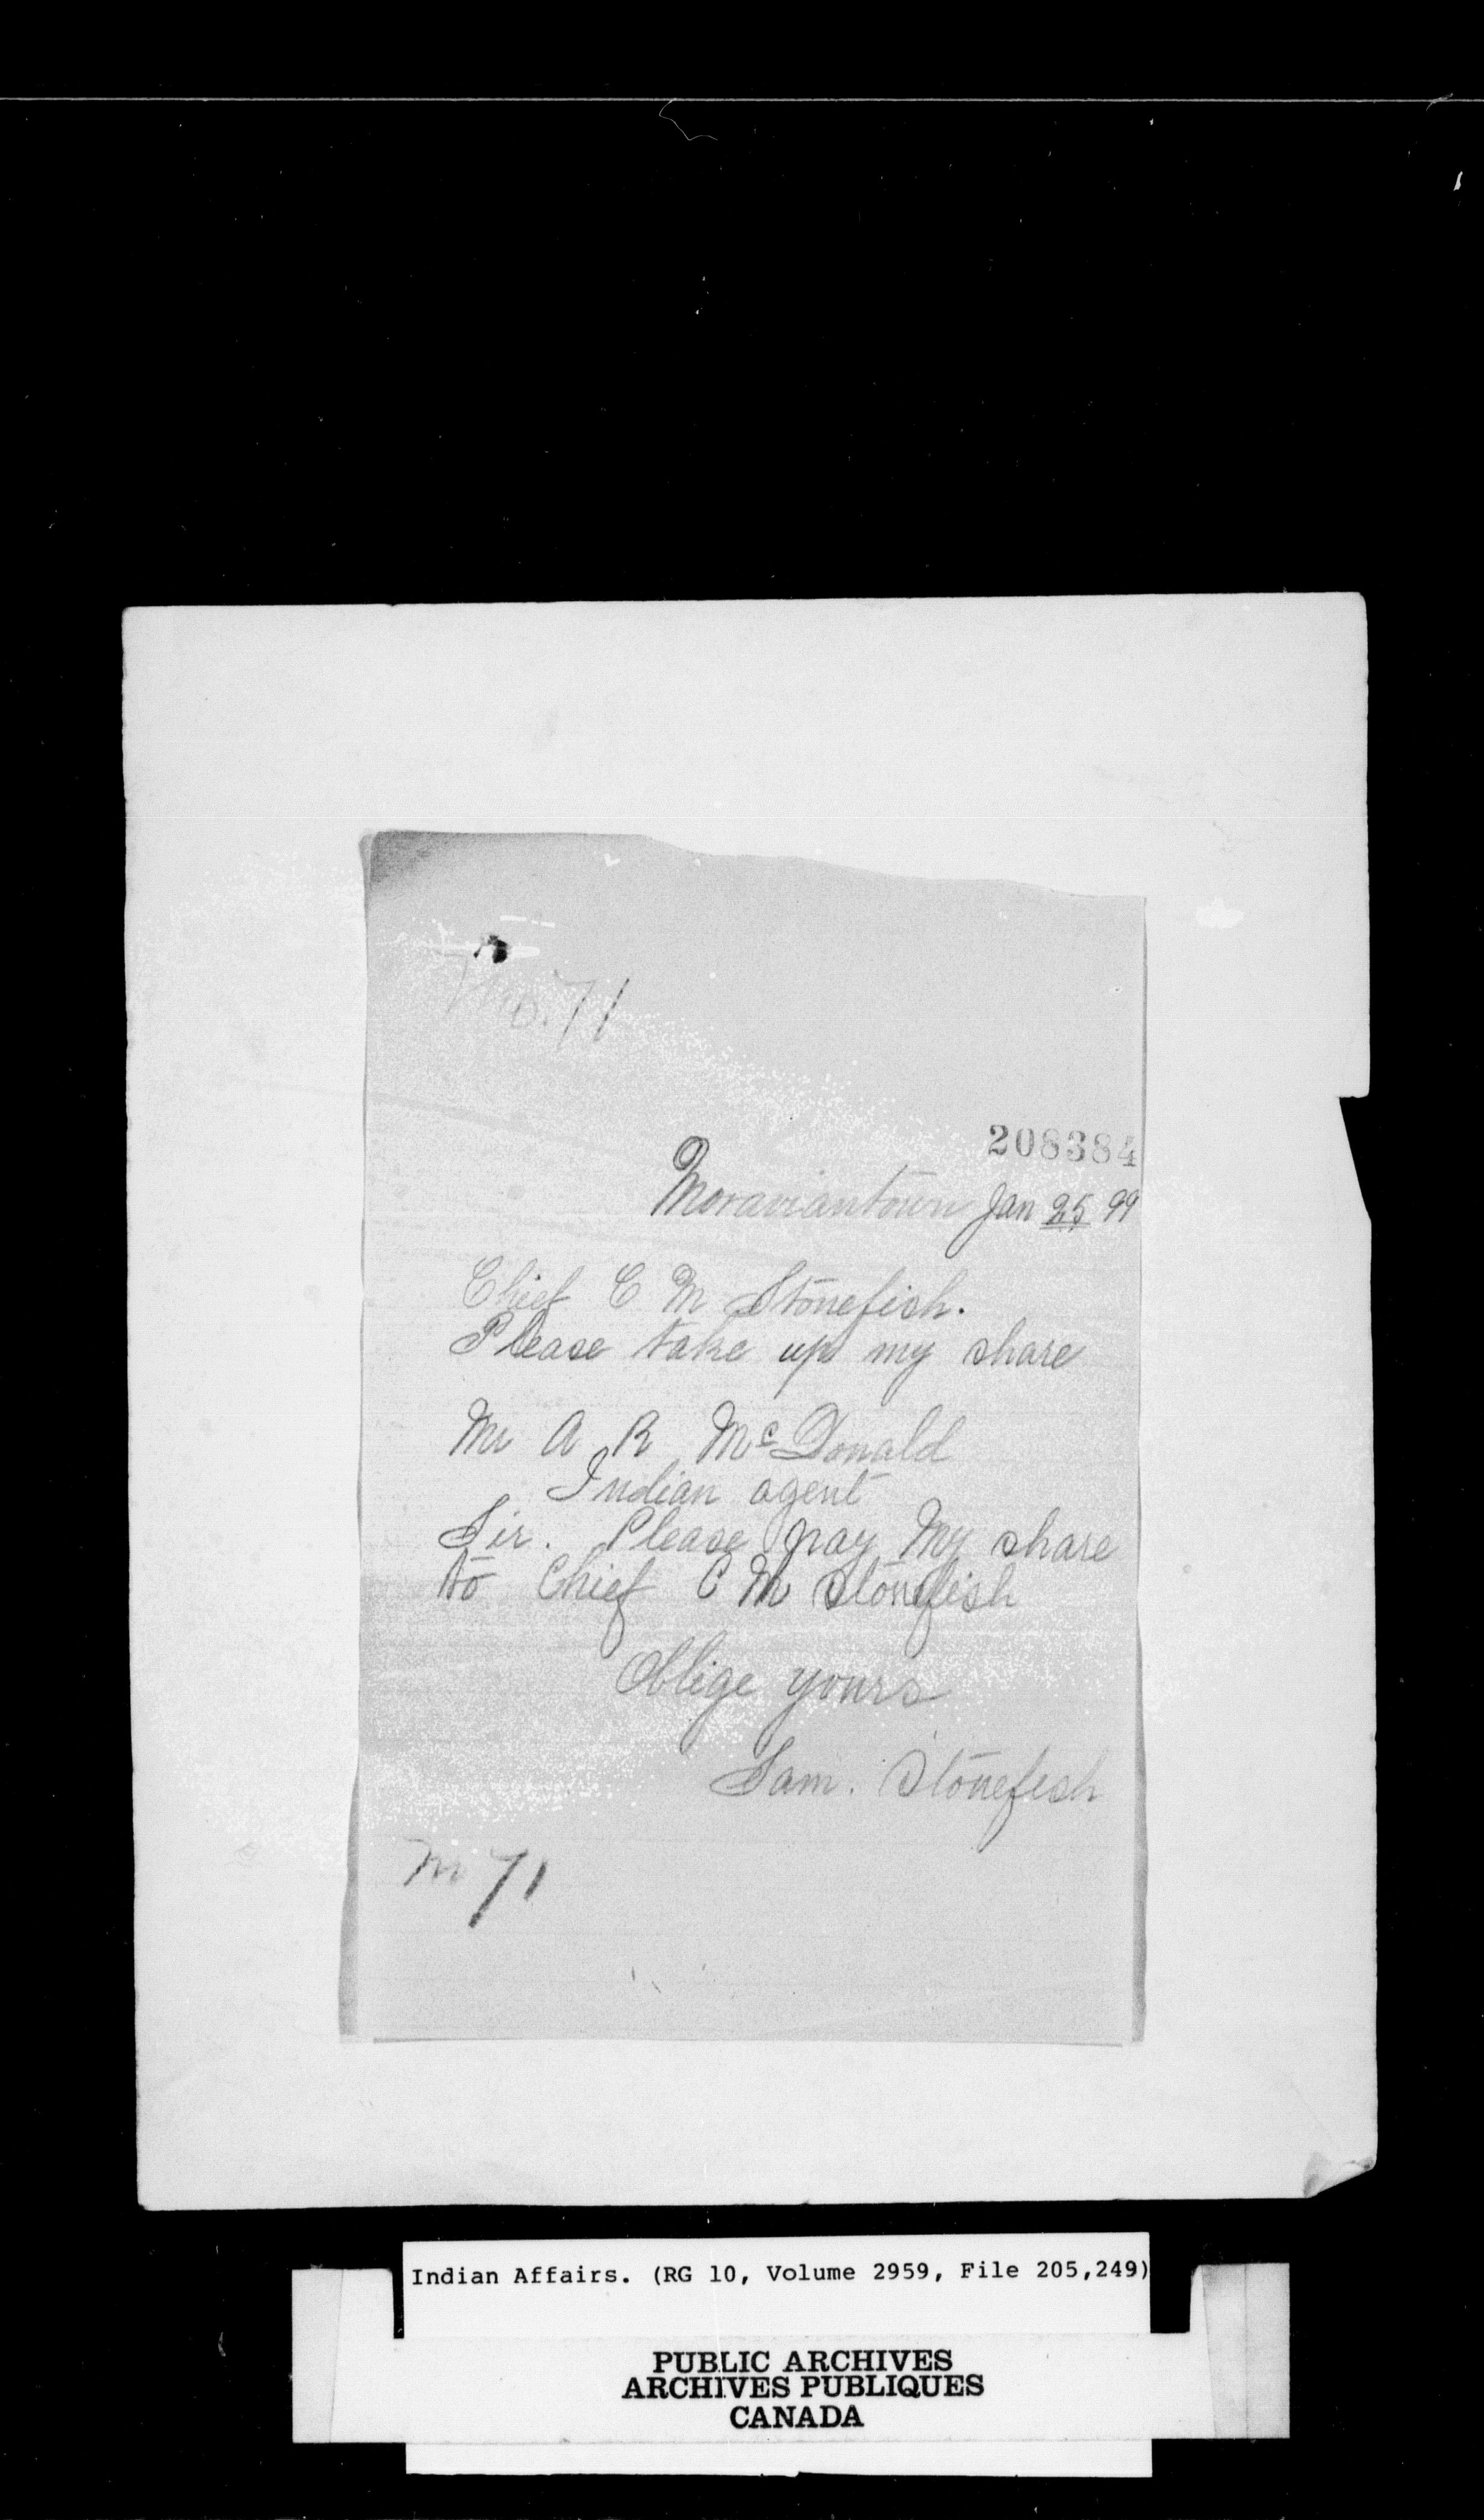 No. 71
208384
Moraviantown Jan 25 99
Chief C M Stonefish.
Please take up my share
Mr A R McDonald
Indian agent
Sir. Please pay My share
to Chief C M Stonefish
Oblige yours
Sam. Stonefish
No 71
Indian Affairs. (RG 10, Volume 2959, File 205,249)
PUBLIC ARCHIVES
ARCHIVES PUBLIQUES
CANADA